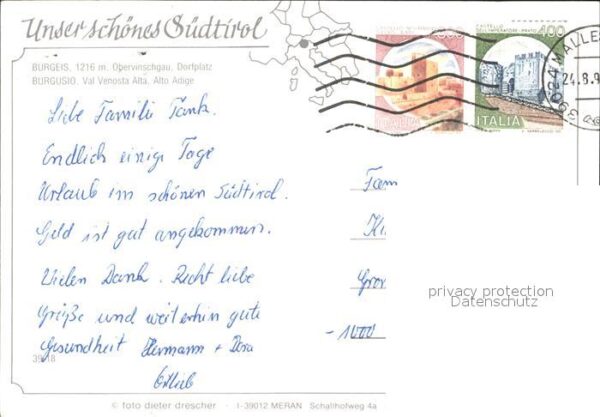 Unser schönes Südtirol
BURGEIS, 1216 m, Obervinschgau, Dorfplatz
BURGUSIO, Val Venosta Alta, Alto Adige
400
ITALIA
ITALIA
39024 MALLES
24.8.9
Liebe Familie Tank.
Endlich einige Tage
Urlaub im schönen Südtirol.
Geld ist gut angekommen.
Vielen Dank. Recht liebe
Grüße und weiterhin gute
Gesundheit Hermann + Dora
Fam
Gro
-1000
privacy protection
Datenschutz
39/18
© foto dieter drescher I-39012 MERAN Schallhofweg 4a